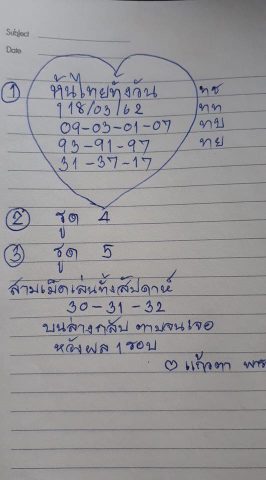 Subject
Date
① หุ้นไทยทั้งวัน ทช
118/03/62 ทท
09-03-01-07 ทบ
93-91-97 ทย
31-37-17
② รูด 4
③ รูด 5
สามเม็ดเล่นทั้งสัปดาห์
30-31-32
บนล่างกลับ ตามจนเจอ
หวังผล 1 รอบ
แก้วตา